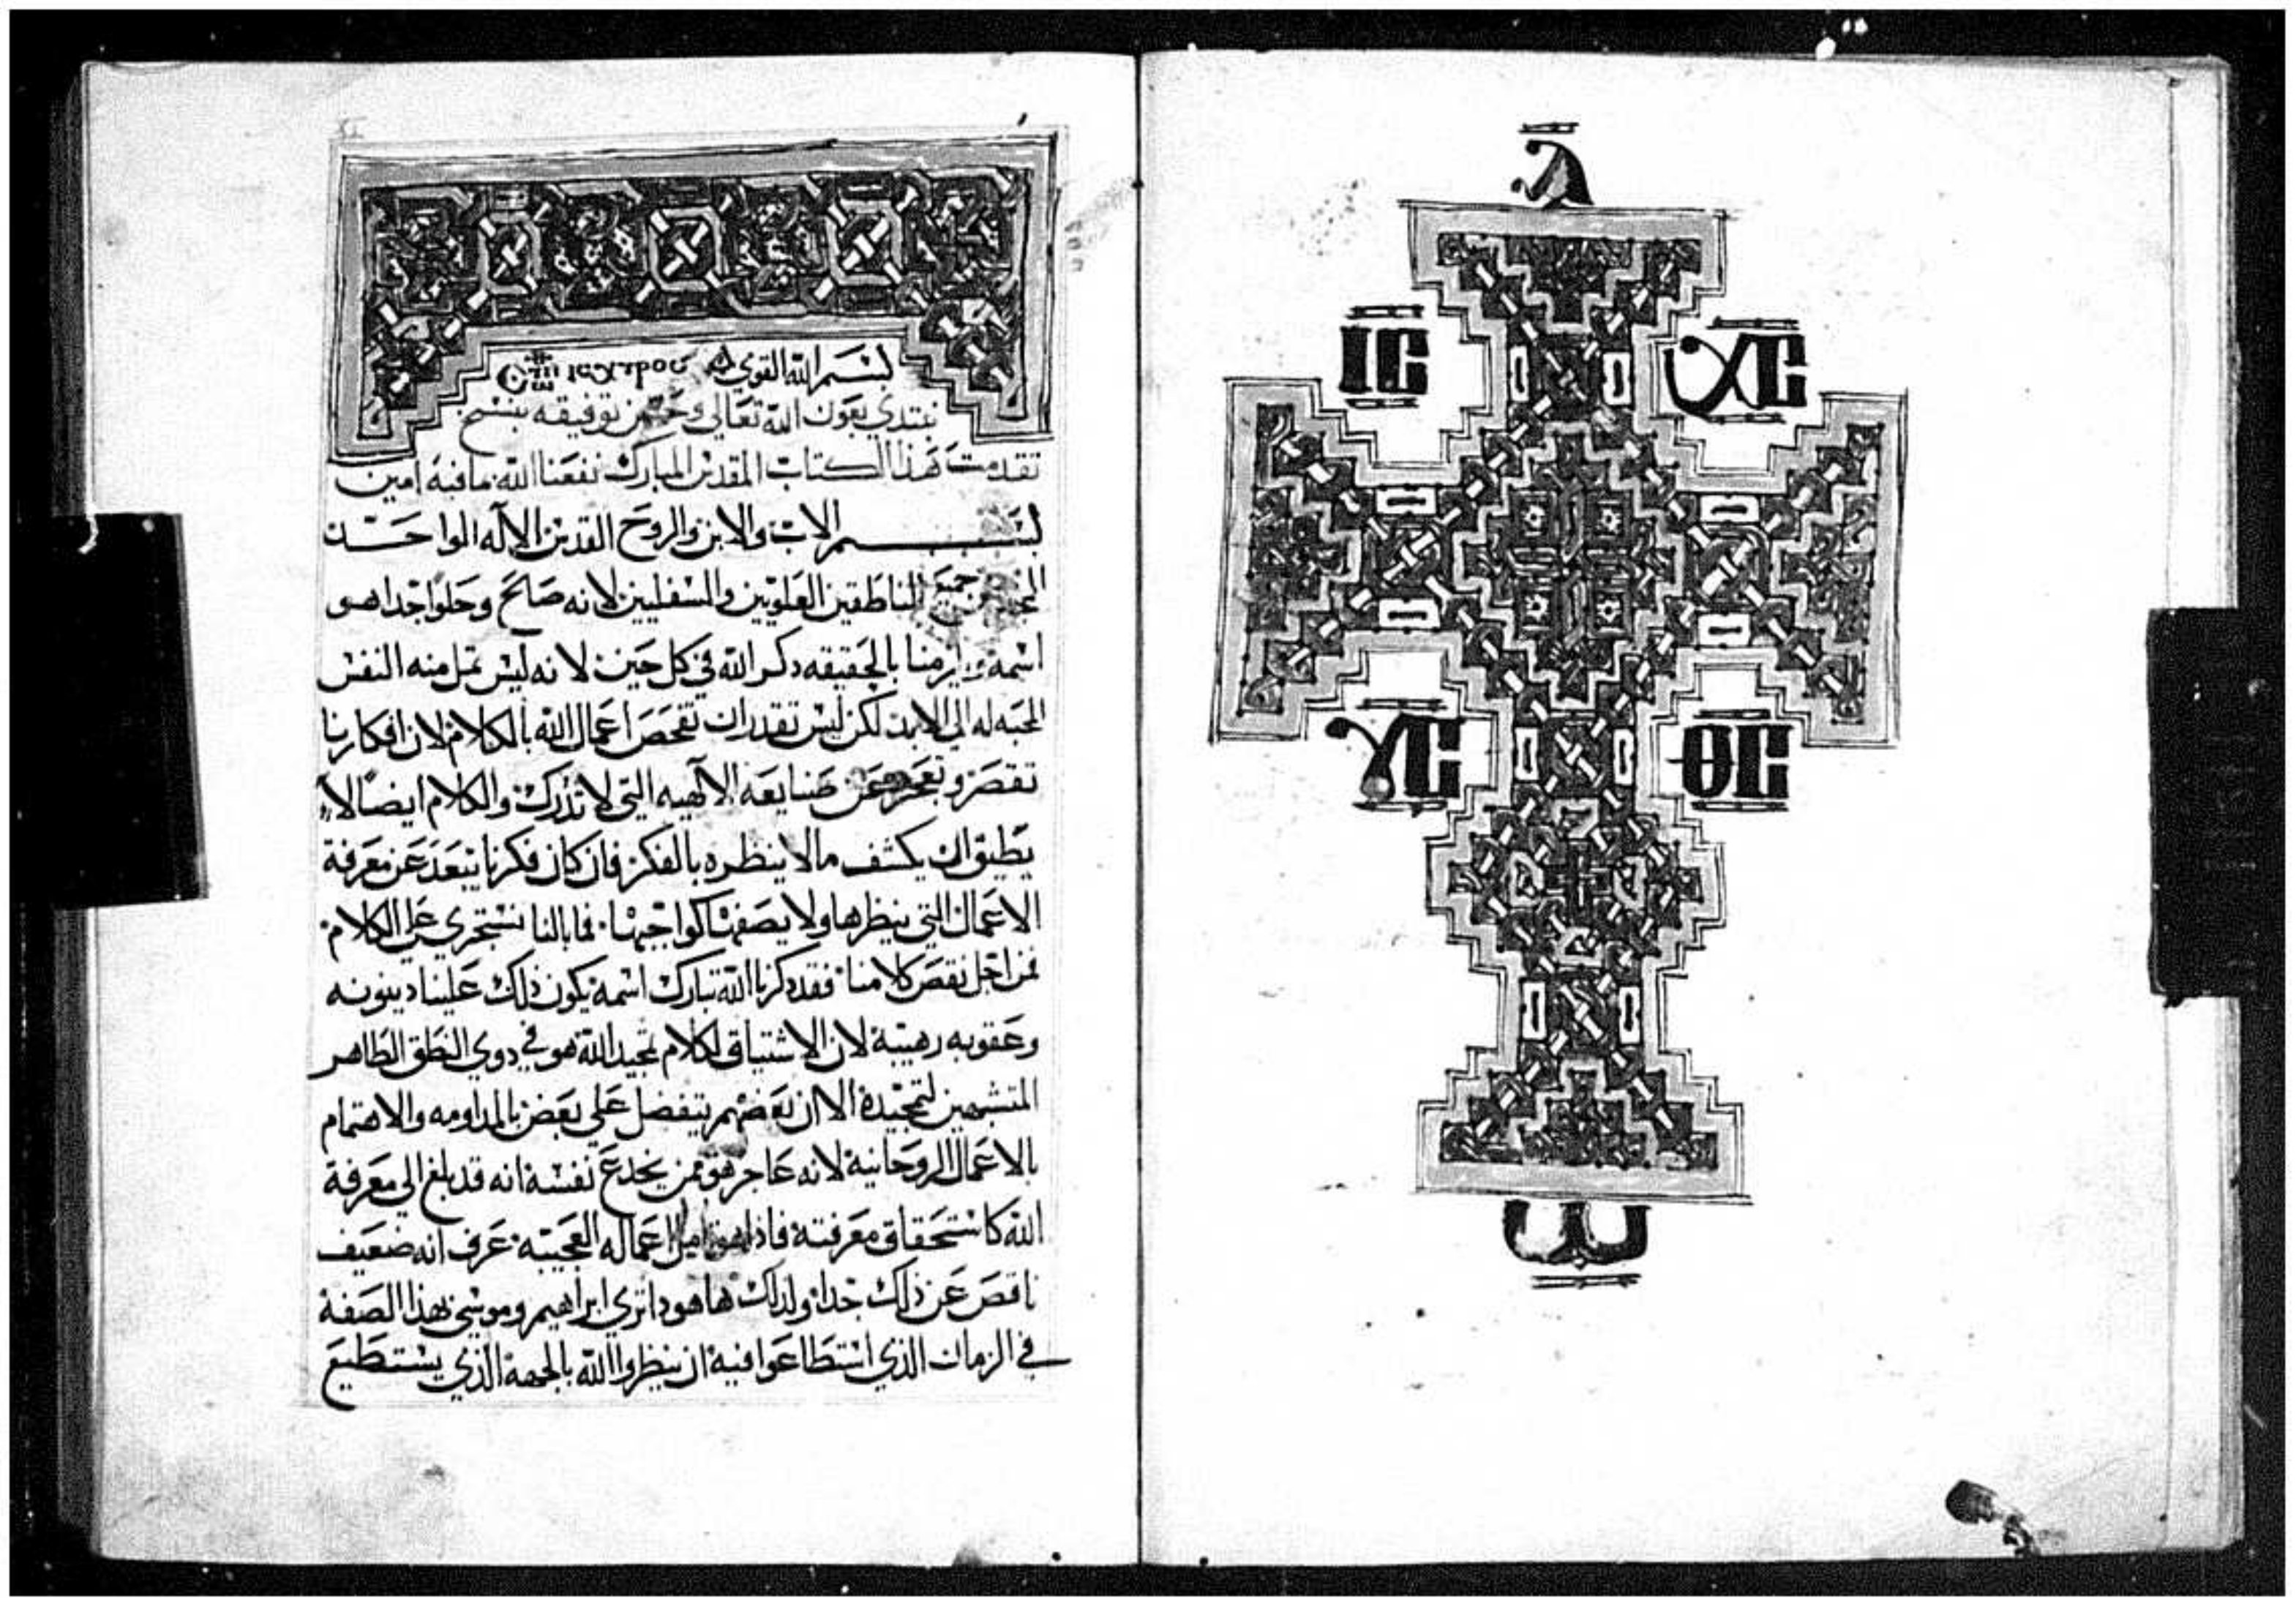 ⲁ
ⲓⲥ ⲭⲥ
ⲩⲥ ⲑⲥ
ⲱ
بسم الله القوي
نبتدي بعون الله تعالي وحسن توفيقه بنسخ
تقدمت هذا الكتاب المقدس المبارك نفعنا الله بما فيه امين
بسم الاب والابن والروح القدس الاله الواحد
جميع الناطقين العلويين والسفليين لانه صالح وحلوا جدا هو
اسمه بالحقيقه دكر الله في كل حين لانه ليس تمل منه النفس
المحبه له الي الابد لكن ليس تقدر ان تفحص اعمال الله بالكلام لان افكارنا
تقصر وتعجز عن صنايعه الالهيه التي لا تدرك والكلام ايضا لا
يطيق ان يكشف ما لا ينظره بالفكر فان كان فكرنا يبعد عن معرفة
الاعمال التي ينظرها ولا يصفها كواجبها فما بالنا نستجري علي الكلام
فمن اجل نقص كلامنا فقد دكرنا الله تبارك اسمه يكون ذلك علينا دينونه
وعقوبه رهيبة لان الاشتياق لكلام تمجيد الله هو في دوي النطق الطاهر
لتمجيدة الا ان بعضهم يتفضل علي بعض بالمداومه والاهتمام
بالاعمال الروحانية لانه عاجز هو من يخدع نفسه انه قد بلغ الي معرفة
الله كاستحقاق معرفته فاذا هو تامل اعماله العجيبه عرف انه ضعيف
ناقص عن ذلك جدا ولدلك ها هودا تري ابراهيم وموسي بهذا الصفة
في الزمان الذي استطاعوا فيه ان ينظروا الله بالجهة الذي يستطيع